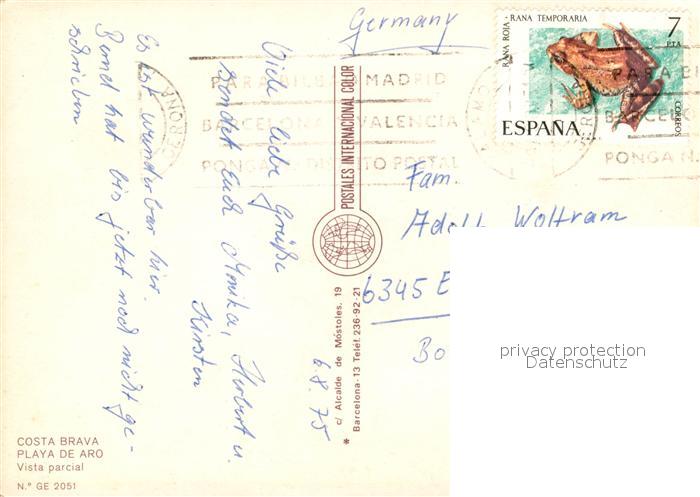 Germany
RANA ROJA - RANA TEMPORARIA
7
PTA
CORREOS
ESPAÑA
PARA BILBAO MADRID
BARCELONA VALENCIA
PONGA Nº DISTRITO POSTAL
PARA BI
BARCELO
PONGA Nº
GERONA
6.8.75
Viele liebe Grüße
sendet Euch Monika, Herbert u.
Kirsten
Es ist wunderbar hier.
Bernd hat bis jetzt noch nicht ge-
schrieben
POSTALES INTERNACIONAL COLOR
c/ Alcalde de Móstoles, 19
* Barcelona-13 Teléf. 236-92-21
Fam.
Adolf Woltram
6345 E
Bo
privacy protection
Datenschutz
COSTA BRAVA
PLAYA DE ARO
Vista parcial
N.º GE 2051